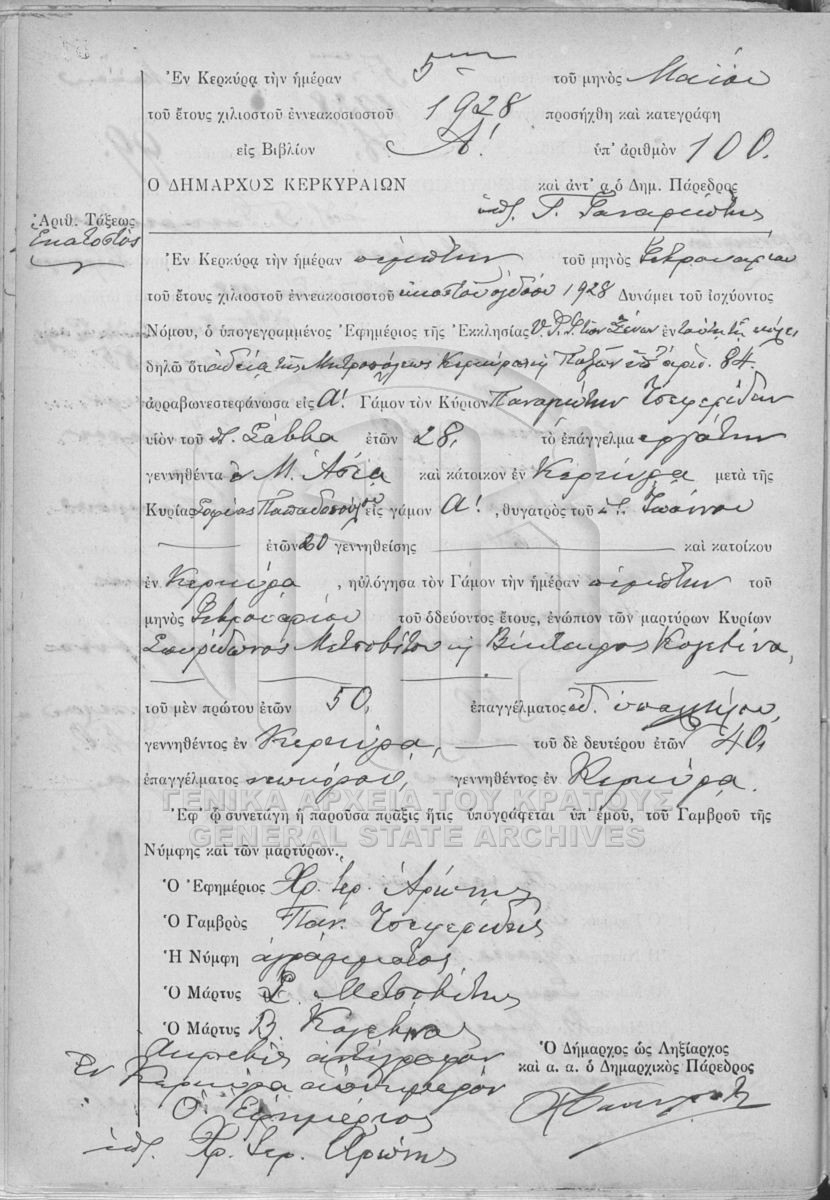 Ἐν Κερκύρᾳ τὴν ἡμέραν 5ην τοῦ μηνὸς Μαΐου
τοῦ ἔτους χιλιοστοῦ ἐννεακοσιοστοῦ 1928 προσήχθη καὶ κατεγράφη
εἰς Βιβλίον Α! ὑπ' ἀριθμὸν 100.
Ο ΔΗΜΑΡΧΟΣ ΚΕΡΚΥΡΑΙΩΝ καὶ ἀντ' α.ὁ Δημ. Πάρεδρος
Ἀριθ. Τάξεως
Ἑκατοστὸς
Ἐν Κερκύρᾳ τὴν ἡμέραν πέμπτην τοῦ μηνὸς Φεβρουαρίου
τοῦ ἔτους χιλιοστοῦ ἐννεακοσιοστοῦ εἰκοστοῦ ὀγδόου 1928 Δυνάμει τοῦ ἰσχύοντος
Νόμου, ὁ ὑπογεγραμμένος Ἐφημέριος τῆς Ἐκκλησίας Υ.Θ. τῶν Ξένων ἐνταῦθα τῇ πόλει
δηλῶ ὅτι ἀδείᾳ τῆς Μητροπόλεως Κερκύρας καὶ Παξῶν ὑπ' ἀριθ. 84.
ἀρραβωνεστεφάνωσα εἰς Α! Γάμον τὸν Κύριον Παναγιώτην
υἱὸν τοῦ Σάββα ἐτῶν 28, τὸ ἐπάγγελμα ἐργάτην
γεννηθέντα ἐν Μ. Ἀσίᾳ καὶ κάτοικον ἐν Κερκύρᾳ μετὰ τῆς
Κυρίας Σοφίας Παπαδοπούλου εἰς γάμον Α!, θυγατρὸς τοῦ Ἰωάννου
ἐτῶν 20 γεννηθείσης καὶ κατοίκου
ἐν Κερκύρᾳ, ηὐλόγησα τὸν Γάμον τὴν ἡμέραν πέμπτην τοῦ
μηνὸς Φεβρουαρίου τοῦ ὁδεύοντος ἔτους, ἐνώπιον τῶν μαρτύρων Κυρίων
Σπυρίδωνος Μετσοβίτου καὶ Βίκτωρος Κογεβίνα,
τοῦ μὲν πρώτου ἐτῶν 50, ἐπαγγέλματος ἰδ. ὑπαλλήλου,
γεννηθέντος ἐν Κερκύρᾳ, τοῦ δὲ δευτέρου ἐτῶν 40,
ἐπαγγέλματος νεωκόρου, γεννηθέντος ἐν Κερκύρᾳ.
ΓΕΝΙΚΑ ΑΡΧΕΙΑ ΤΟΥ ΚΡΑΤΟΥΣ
Ἐφ' ᾧ συνετάγη ἡ παροῦσα πρᾶξις ἥτις ὑπογράφεται ὑπ' ἐμοῦ, τοῦ Γαμβροῦ τῆς
GENERAL STATE ARCHIVES
Νύμφης καὶ τῶν μαρτύρων.
Ὁ Ἐφημέριος Χρ. Ἱερ. Ἀρώνης
Ὁ Γαμβρὸς Παν.
Ἡ Νύμφη ἀγράμματος
Ὁ Μάρτυς Σ. Μετσοβίτης
Ὁ Μάρτυς Β. Κογεβίνας
Ἀκριβὲς ἀντίγραφον
Ἐν Κερκύρᾳ αὐθημερόν
Ὁ Ἐφημέριος
ὑπ. Χρ. Ἱερ. Ἀρώνης
Ὁ Δήμαρχος ὡς Ληξίαρχος
καὶ α. α. ὁ Δημαρχικὸς Πάρεδρος